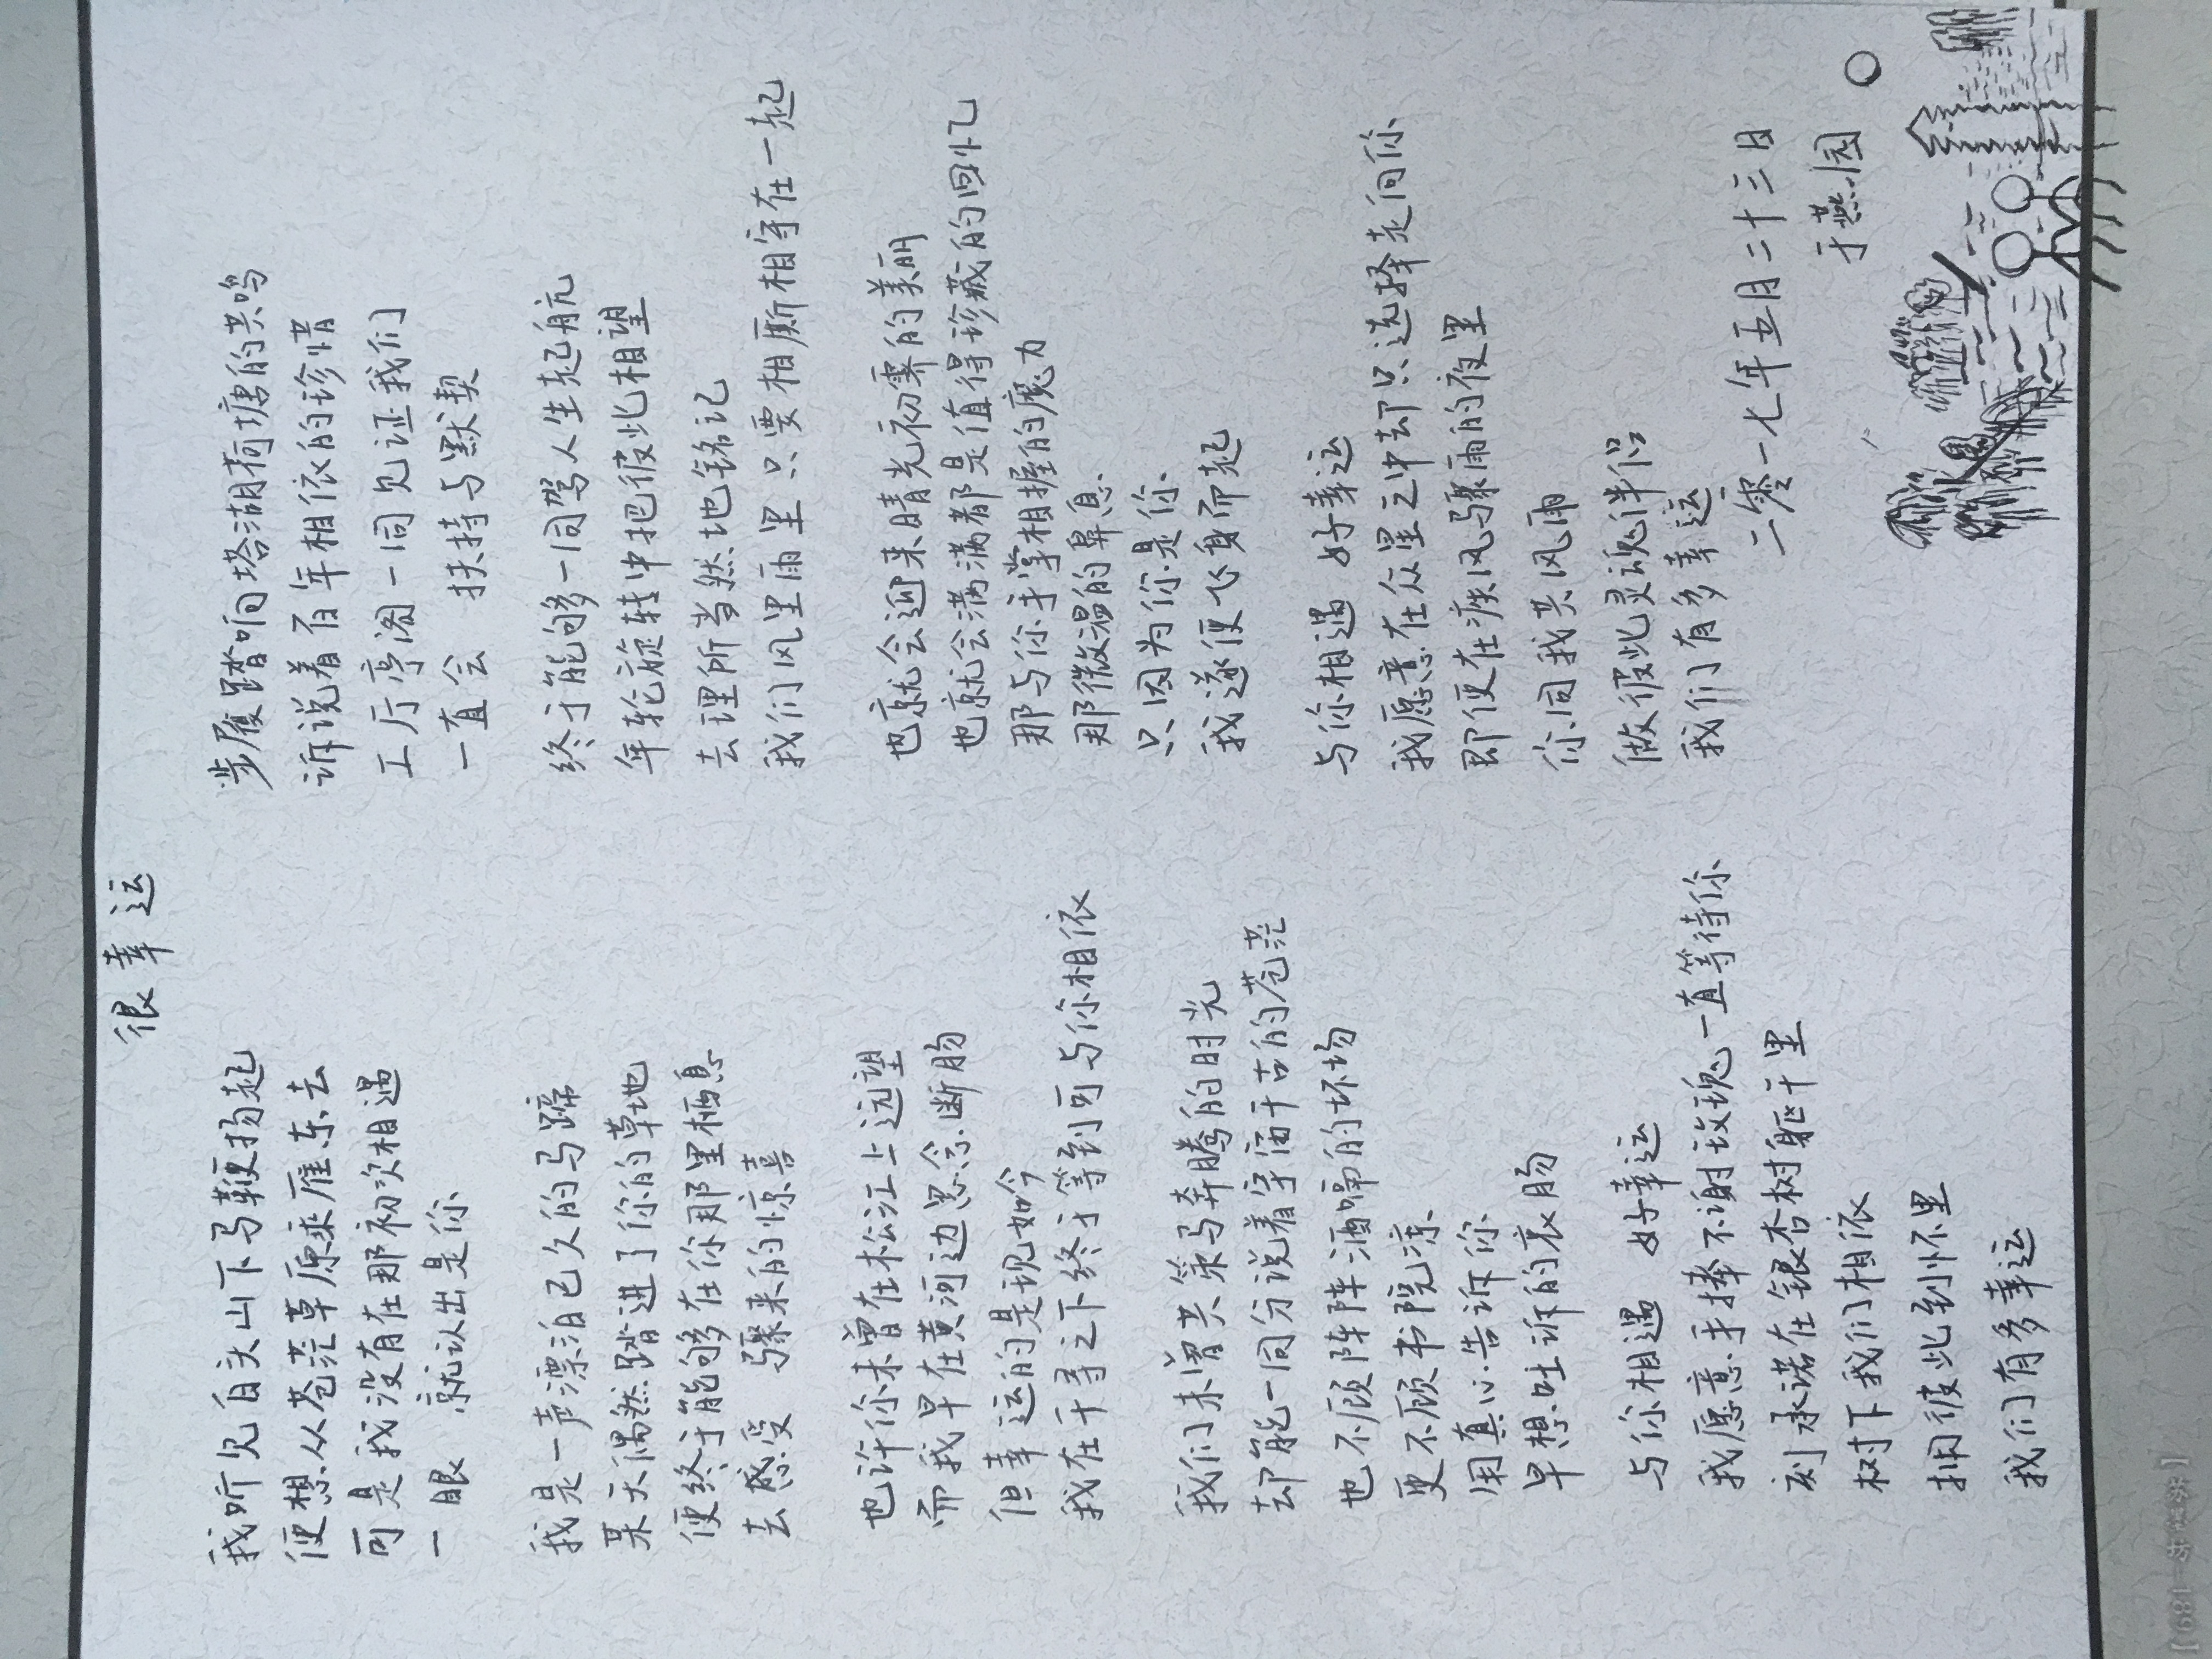 很幸运
我听见白头山下马鞭扬起
便想从苍茫草原乘雁东去
可是我没有在那初次相遇
一眼 就认出是你
我是一声漂泊已久的马蹄
某天偶然踏进了你的草地
便终于能够在你那里栖息
去感受 骤来的惊喜
也许你未曾在松江上远望
而我早在黄河边思念断肠
但幸运的是现如今
我在千寻之下终于等到可与你相依
我们未曾共策马奔腾的时光
却能一同分说着宇宙千古的苍茫
也不顾阵阵酒嗝的坏场
更不顾书院凉
用真心告诉你
早想吐诉的衷肠
与你相遇 好幸运
我愿意手捧不谢玫瑰一直等待你
刻承诺在银杏树躯干里
树下我们相依
拥彼此到怀里
我们有多幸运
步履踏响塔湖荷塘的共鸣
诉说着百年相依的珍惜
工厅亭阁一同见证我们
一直会 扶持与默契
终于能够一同驾人生起航
年轮旋转中把彼此相望
去理所当然地铭记
我们风里雨里只要相厮相守在一起
也就会迎来晴光初霁的美丽
也就会满满都是值得珍藏的回忆
那与你手掌相握的魔力
那微温的鼻息
只因为你是你
我遂便飞身而起
与你相遇 好幸运
我愿意在众星之中却只选择走向你
即便在疾风骤雨的夜里
你同我共风雨
做彼此灵魂伴侣
我们有多幸运
二零一七年五月二十三日
于燕园